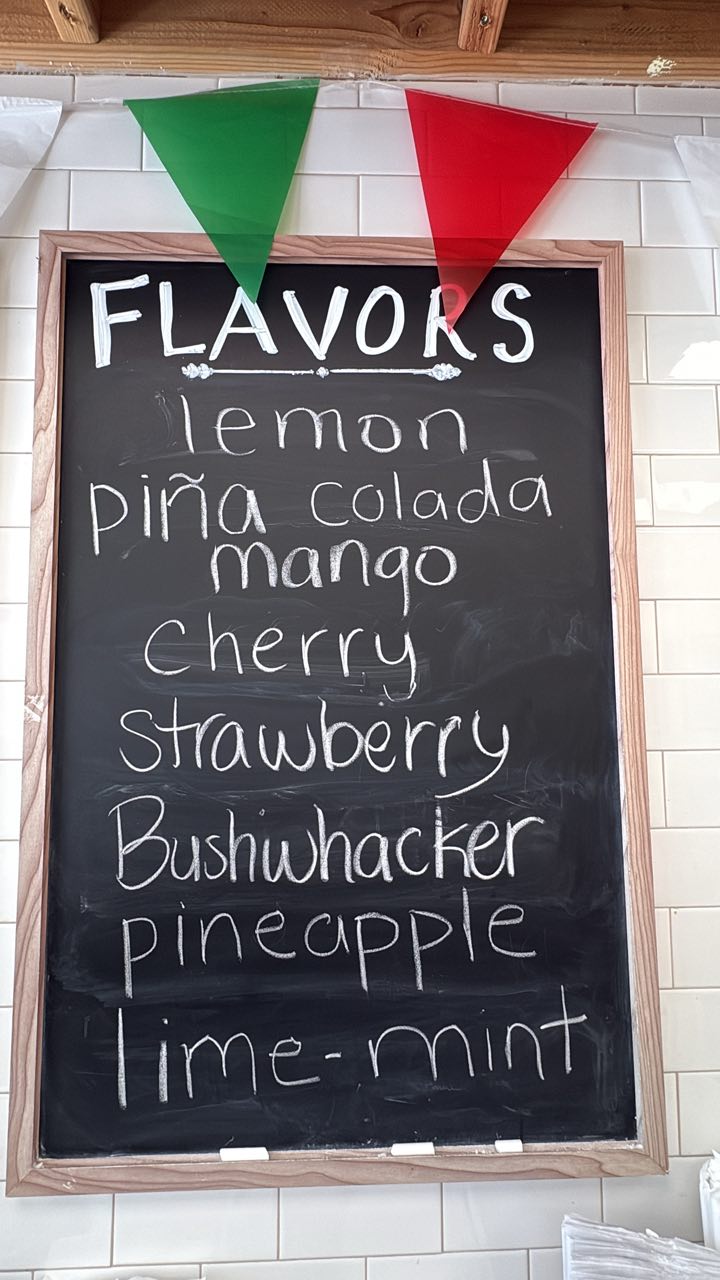 FLAVORS
lemon
piña colada
mango
cherry
strawberry
Bushwhacker
pineapple
lime-mint